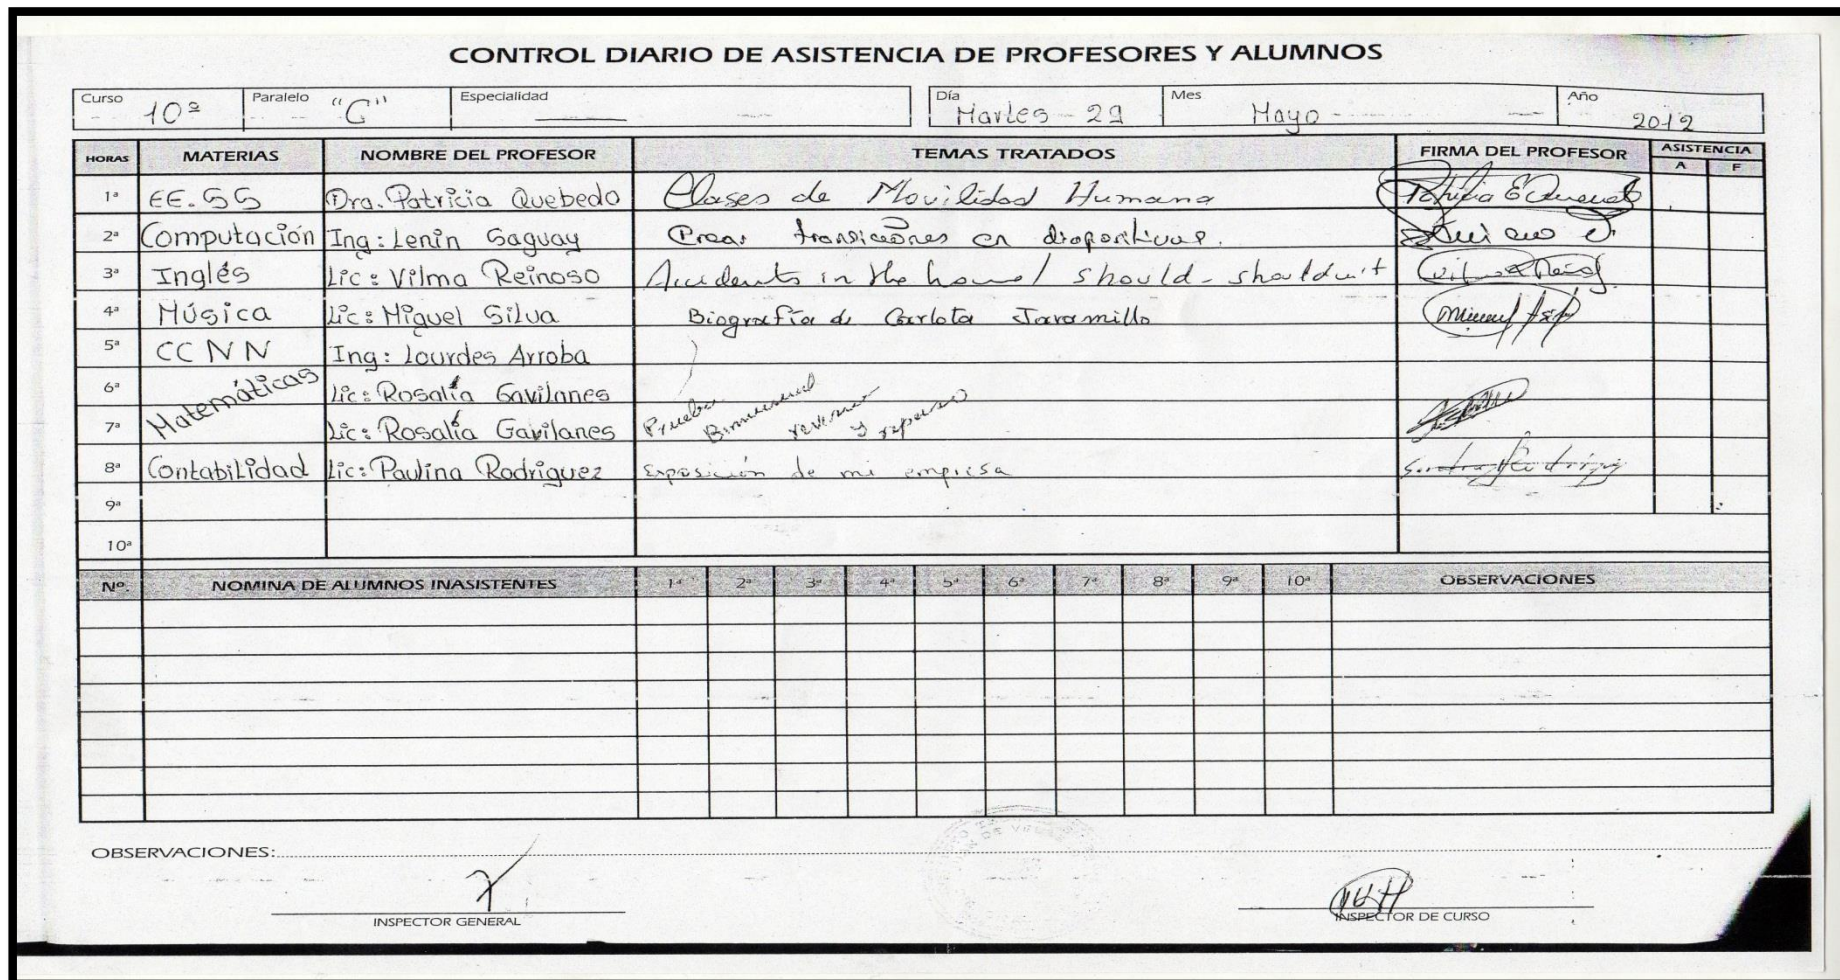 CONTROL DIARIO DE ASISTENCIA DE PROFESORES Y ALUMNOS
Curso 10º Paralelo "C" Especialidad Día Martes - 29 Mes Mayo Año 2012
HORAS MATERIAS NOMBRE DEL PROFESOR TEMAS TRATADOS FIRMA DEL PROFESOR ASISTENCIA
A F
1ª EE.SS Dra. Patricia Quebedo Clases de Movilidad Humana
2ª Computación Ing: Lenin Saguay Crear transiciones en diapositivas.
3ª Inglés Lic: Vilma Reinoso Accidents in the home / should - shouldn't
4ª Música Lic: Miguel Silva Biografía de Carlota Jaramillo
5ª CCNN Ing: Lourdes Arroba
6ª Matemáticas Lic: Rosalía Gavilanes
7ª Lic: Rosalía Gavilanes Prueba y
8ª Contabilidad Lic: Paulina Rodriguez Exposición de mi empresa
9ª
10ª
Nº. NOMINA DE ALUMNOS INASISTENTES 1ª 2ª 3ª 4ª 5ª 6ª 7ª 8ª 9ª 10ª OBSERVACIONES
OBSERVACIONES:
INSPECTOR GENERAL INSPECTOR DE CURSO